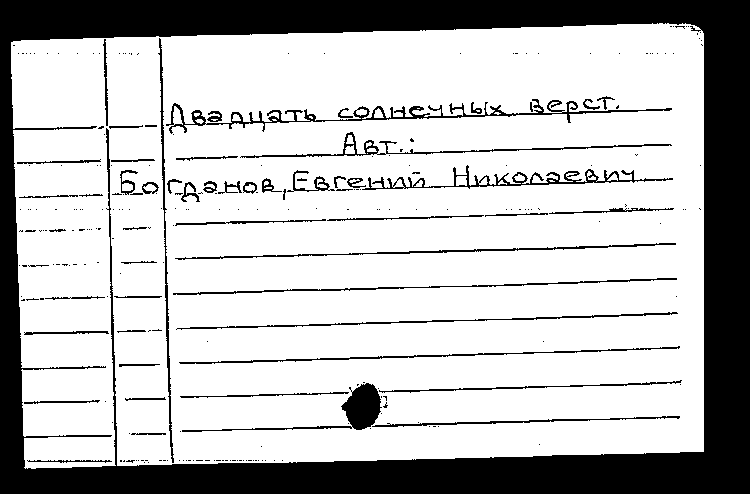 Двадцать солнечных верст.
Авт.:
Богданов, Евгений Николаевич